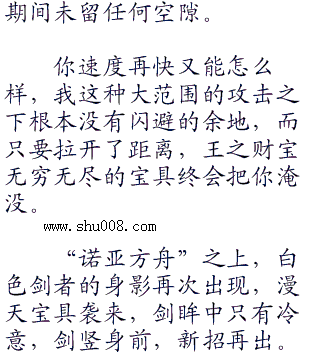 期间未留任何空隙。
你速度再快又能怎么
样，我这种大范围的攻击之
下根本没有闪避的余地，而
只要拉开了距离，王之财宝
无穷无尽的宝具终会把你淹
没。
www.shu008.com
“诺亚方舟”之上，白
色剑者的身影再次出现，漫
天宝具袭来，剑眸中只有冷
意，剑竖身前，新招再出。